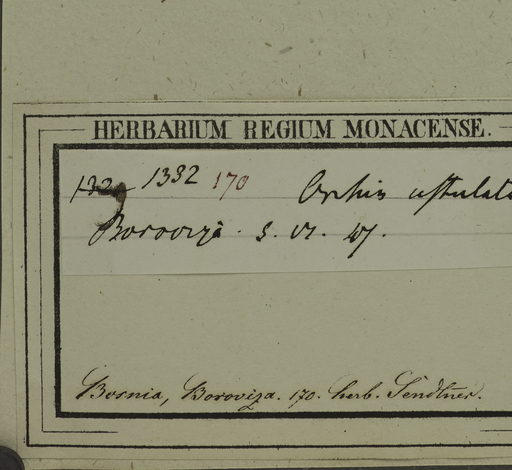 HERBARIUM REGIUM MONACENSE.
1332 170 Orchis ustulat
Boroviza. 5. VI. 47.
Bosnia, Boroviza. 170. herb. Sendtner.